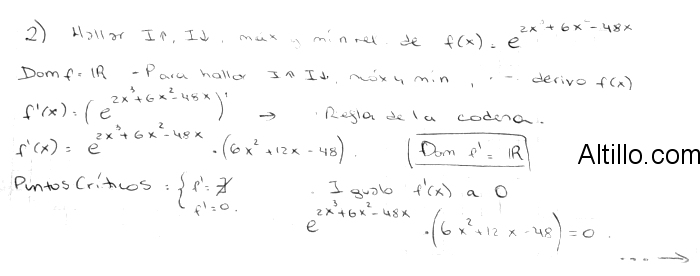 2) Hallar I↑, I↓, max y min rel. de f(x) = e^{2x³+6x²-48x}
Domf = ℝ - Para hallar I↑ I↓, máx y min, derivo f(x)
f'(x) = (e^{2x³+6x²-48x})' → Regla de la cadena.
f'(x) = e^{2x³+6x²-48x} . (6x²+12x-48). Dom f' = ℝ
Altillo.com
Puntos Críticos : { f' = ∄ . Igualo f'(x) a 0
f' = 0.
e^{2x³+6x²-48x} . (6x²+12x-48) = 0.
----→